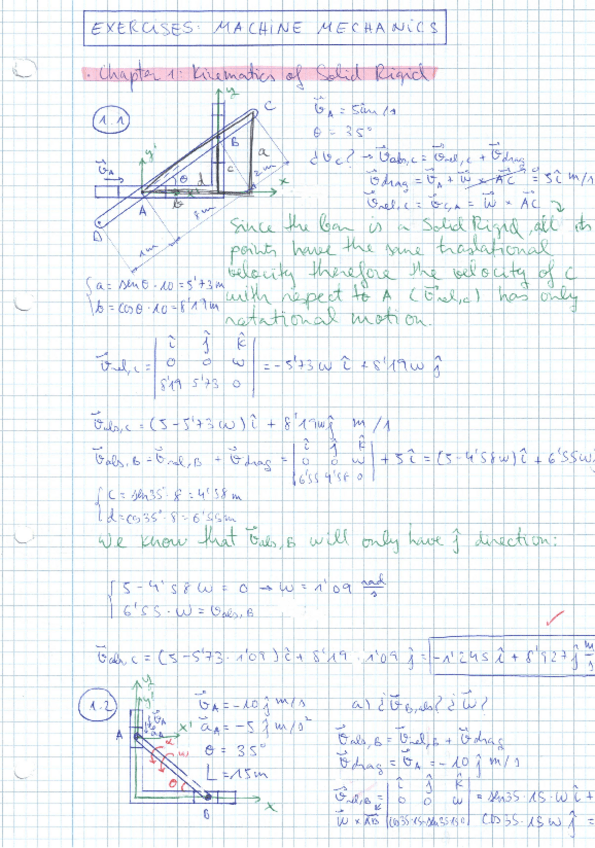 EXERCISES: MACHINE MECHANICS
· Chapter 1: Kinematics of Solid Rigid
1.1
y
y'
C
B
a
c
d
b
θ
A
D
x
2m
8m
1m
v⃗A
v⃗A = 5 î m/s
θ = 35°
¿v⃗c? → v⃗abs,c = v⃗rel,c + v⃗drag
v⃗drag = v⃗A + w⃗ × AC⃗ = 5 î m/s
v⃗rel,c = v⃗C,A = w⃗ × AC⃗
Since the bar is a Solid Rigid, all its
points have the same traslational
velocity therefore the velocity of C
with respect to A (v⃗rel,c) has only
rotational motion.
a = senθ · 10 = 5'73 m
b = cosθ · 10 = 8'19 m
v⃗rel,c = | î ĵ k̂ |
| 0 0 w | = -5'73w î + 8'19w ĵ
| 8'19 5'73 0 |
v⃗abs,c = (5 - 5'73w) î + 8'19w ĵ m/s
v⃗abs,B = v⃗rel,B + v⃗drag = | î ĵ k̂ |
| 0 0 w | + 5 î = (5 - 4'58w) î + 6'55w ĵ
| 6'55 4'58 0 |
c = sen35 · 8 = 4'58 m
d = cos35° · 8 = 6'55 m
We know that v⃗abs,B will only have ĵ direction:
5 - 4'58w = 0 → w = 1'09 rad/s
6'55 · w = vabs,B
v⃗abs,c = (5 - 5'73 · 1'09) î + 8'19 · 1'09 ĵ = -1'245 î + 8'927 ĵ m/s
1.2
y
y'
v⃗A
a⃗A
x'
A
α
w
θ
B
x
v⃗A = -10 ĵ m/s
a⃗A = -5 ĵ m/s²
θ = 35°
L = 15m
a) ¿v⃗B,abs? ¿w⃗?
v⃗abs,B = v⃗rel,B + v⃗drag
v⃗drag = v⃗A = -10 ĵ m/s
v⃗rel,B = | î ĵ k̂ |
| 0 0 w | = sen35 · 15 · w î +
w⃗ × AB⃗ | cos35·15 -sen35·15 0 | cos35 · 15w ĵ =